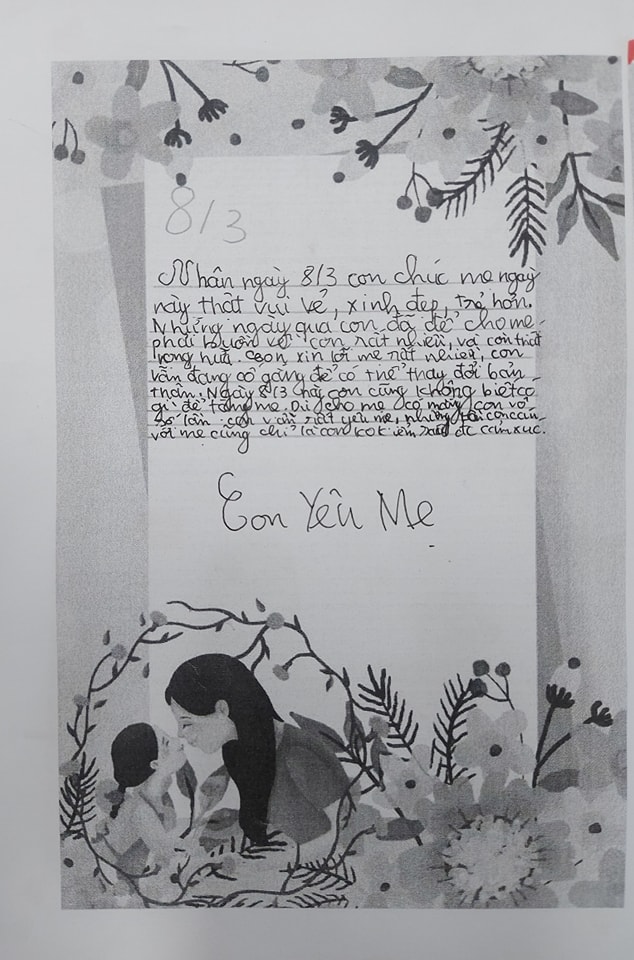 8/3
Nhân ngày 8/3 con chúc mẹ ngày
này thật vui vẻ, xinh đẹp, trẻ hơn.
Những ngày qua con đã để cho mẹ
phải buồn về con rất nhiều, và con thất
vọng hứa. Con xin lỗi mẹ rất nhiều, con
vẫn đang cố gắng để có thể thay đổi bản
thân. Ngày 8/3 này con cũng không biết có
gì để tặng mẹ. Dù cho mẹ có mắng con vô
số lần con vẫn rất yêu mẹ, nhưng
với mẹ cũng chỉ là con kok đc cảm xúc.
Con Yêu Mẹ